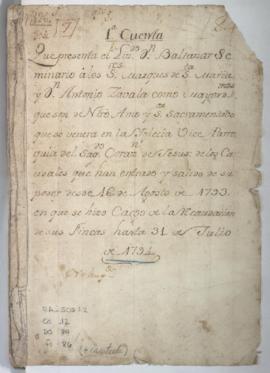 1ª Cuenta
Que presenta el Lizdo Dn Baltazar Se
minario à los Sres Marques de Sta Maria
y Dn Antonio Zavala como Mayordo
ques de Ntro Amo y Sr Sacramentado
que se venera en la Iglecia Vice Parro
quia del Sagdo Corazn de Jesus: de los Ca
udales que han entrado y salido de su
poder desde 16 de Agosto de 1793
en que se hizo Cargo de la Recaudacion
de sus Fincas hasta 31 de Julio
de 1794
CO 12